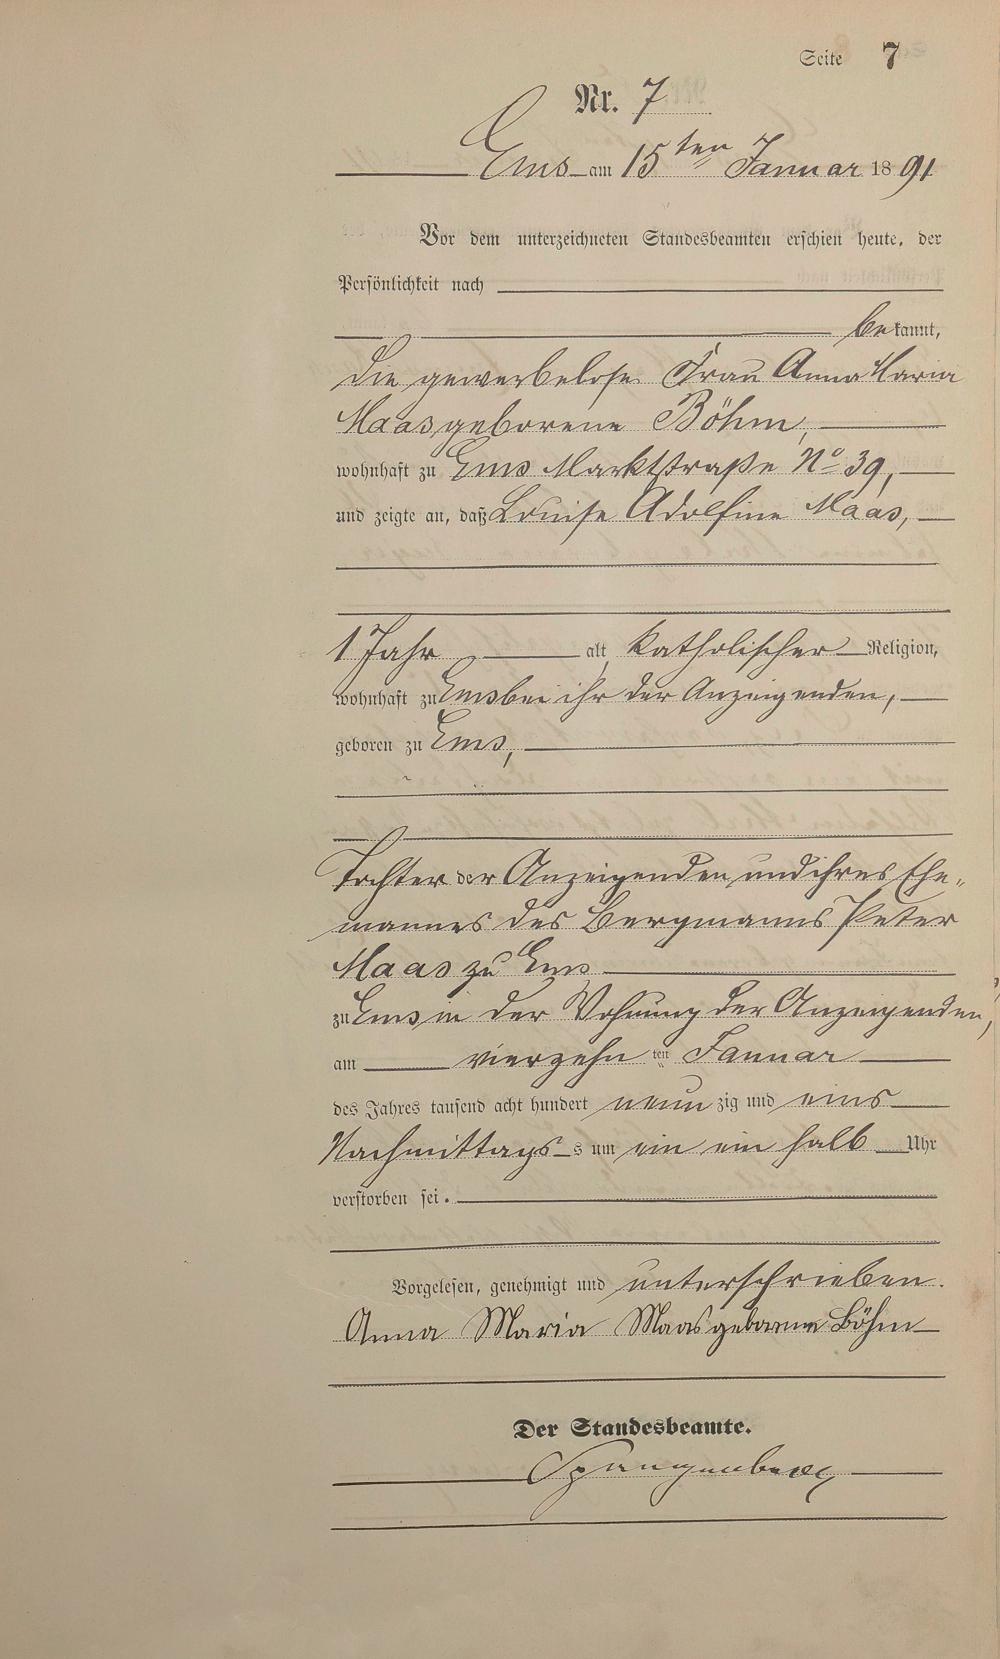 Seite 7
Nr. 7
Ems am 15ten Januar 1891
Vor dem unterzeichneten Standesbeamten erschien heute, der
Persönlichkeit nach
bekannt,
die gewerbelose Frau Anna Maria
Maas geborene Böhm,
wohnhaft zu Ems Marktstraße No 39,
und zeigte an, daß Louise Adolfine Maas,
1 Jahr alt, katholischer Religion,
wohnhaft zu Ems bei ihr der Anzeigenden,
geboren zu Ems,
Tochter der Anzeigenden und ihres Ehe-
mannes des Bergmanns Peter
Maas zu Ems
zu Ems in der Wohnung der Anzeigenden,
am vierzehnten Januar
des Jahres tausend acht hundert neunzig und eins
Nachmittags um ein ein halb Uhr
verstorben sei.
Vorgelesen, genehmigt und unterschrieben.
Anna Maria Maas geborene Böhm
Der Standesbeamte.
Spangenberg